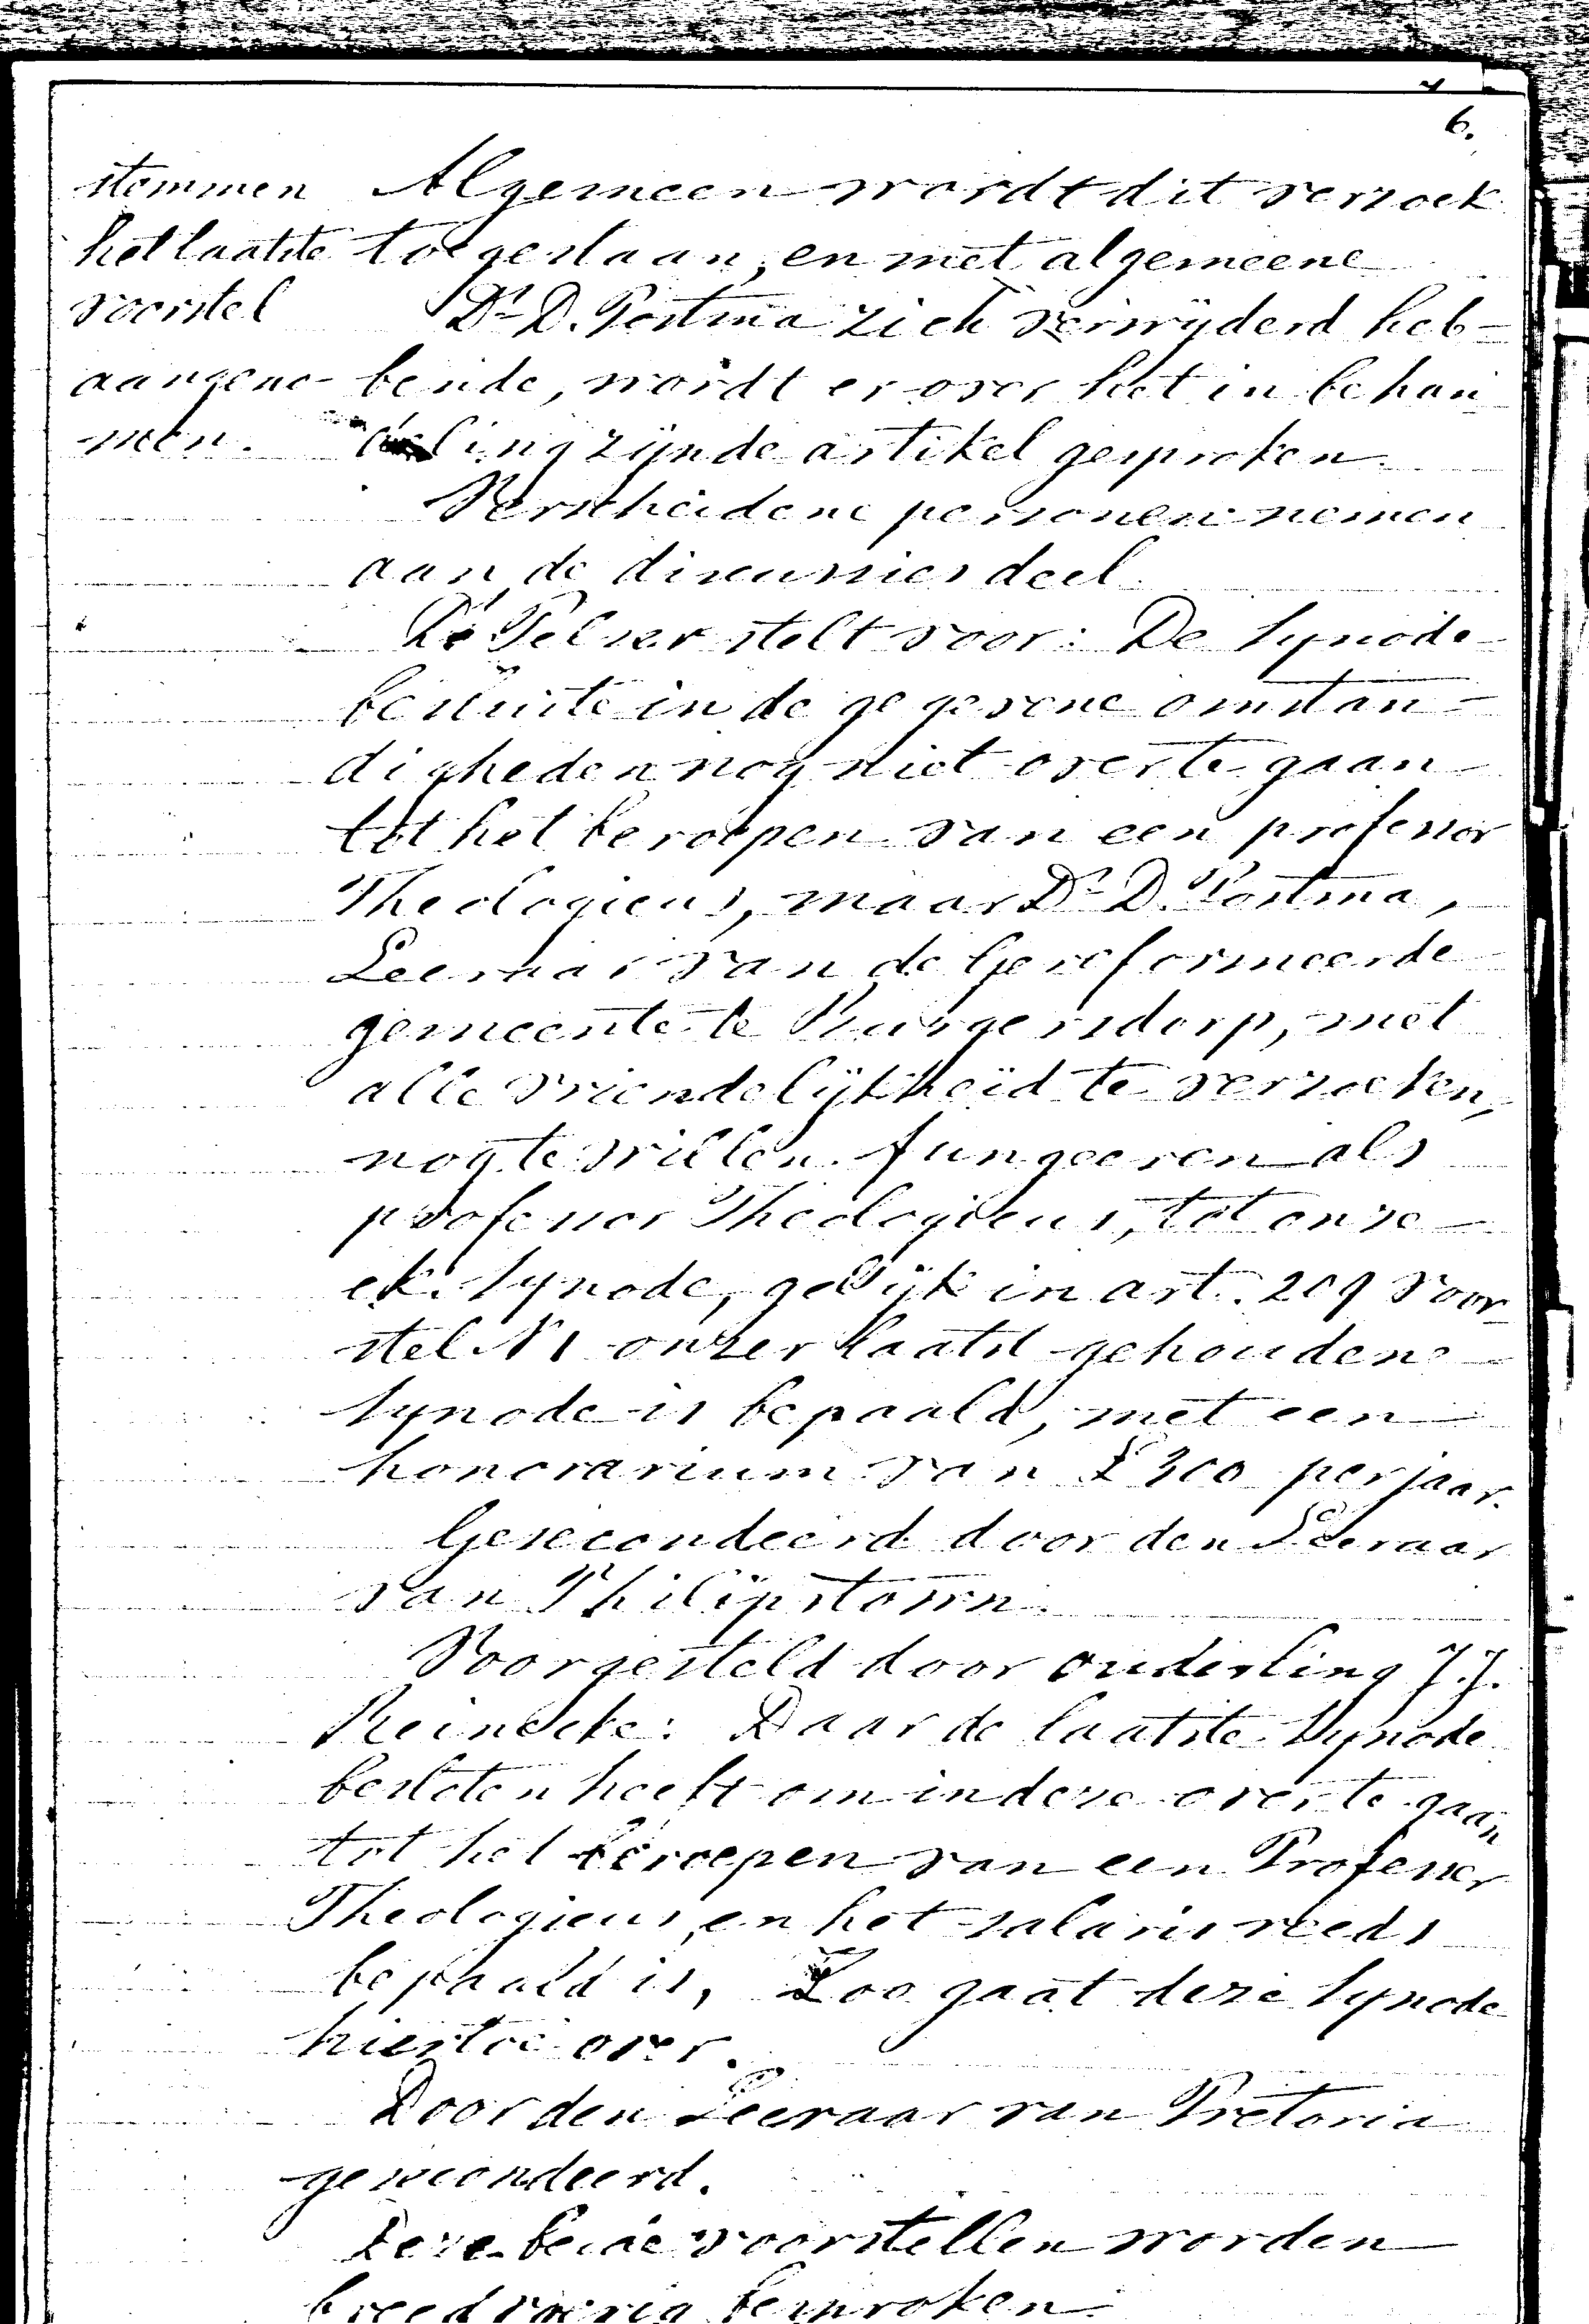 6.
stemmen
het laatste
voorstel
aangeno-
men.
Algemeen wordt dit verzoek
toegestaan, en met algemeene
Ds. D. Postma zich verwijderd heb-
bende, wordt er over het in behan
deling zijnde artikel gesproken.
Verscheidene personen nemen
aan de discussies deel.
Ds Pelser stelt voor: De Synode
besluite in de gegevene omstan-
digheden nog niet over te gaan
tot het beroepen van een professor
Theologicus, maar Ds. D. Postma,
Leeraar van de Gereformeerde
gemeente te Burgersdorp, met
alle vriendelijkheid te verzoeken,
nog te willen fungeeren als
professor Theologicus, tot onze
ek. Synode, gelijk in art. 209 voor-
stel N1 onzer laatst gehoudene
Synode is bepaald, met een
honorarium van £300 per jaar.
Gesecondeerd door den Leeraar
van Philipstown.
Voorgesteld door ouderling J.J.
Reinecke: Daar de laatste Synode
besloten heeft om in deze over te gaan
tot het beroepen van een Professor
Theologicus, en het salaris reeds
bepaald is, Zoo gaat deze Synode
hiertoe over.
Door den Leeraar van Pretoria
gesecondeerd.
Deze beide voorstellen worden
breedvoerig besproken.